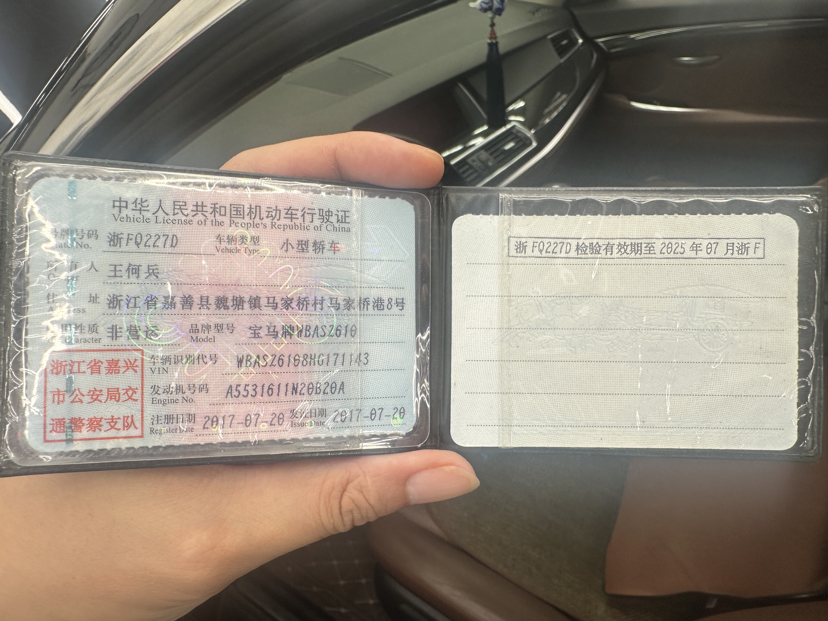 中华人民共和国机动车行驶证
Vehicle License of the People's Republic of China
号牌号码 浙FQ227D 车辆类型 小型轿车
Plate No. Vehicle Type
所有人 王何兵
住址 浙江省嘉善县魏塘镇马家桥村马家桥港8号
使用性质 非营运 品牌型号 宝马牌WBAS2610
Use Character Model
浙江省嘉兴
市公安局交
通警察支队
车辆识别代号 WBAS26108HG171143
VIN
发动机号码 A5531611N20B20A
Engine No.
注册日期 2017-07-20 发证日期 2017-07-20
Register Date Issue Date
浙FQ227D 检验有效期至 2025 年 07 月浙F